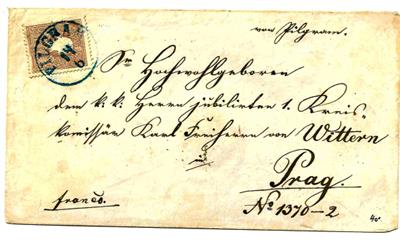 PILGRAM
14
6
von Pilgram.
Sr Hochwohlgeboren
dem k: k: Herrn jubilirten 1. Kreis-
komissär Karl Freiherrn von Wittern
in
Prag.
franco.
No 1370-2